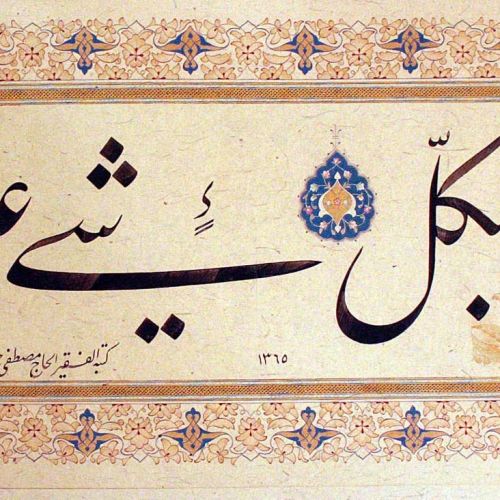 بكلّ شيءٍ
١٣٦٥
كتبه الفقير الحاج مصطفى